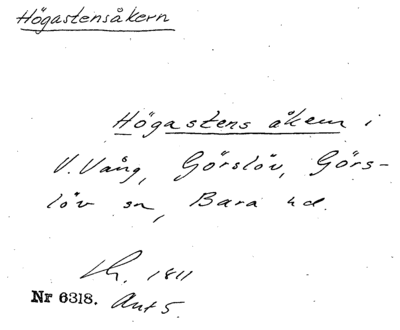 Högastensåkern
Högastens åkern i
V. Vång, Görslöv, Görs-
löv sn, Bara hd.
1811
Nr 6318. Ant 5.